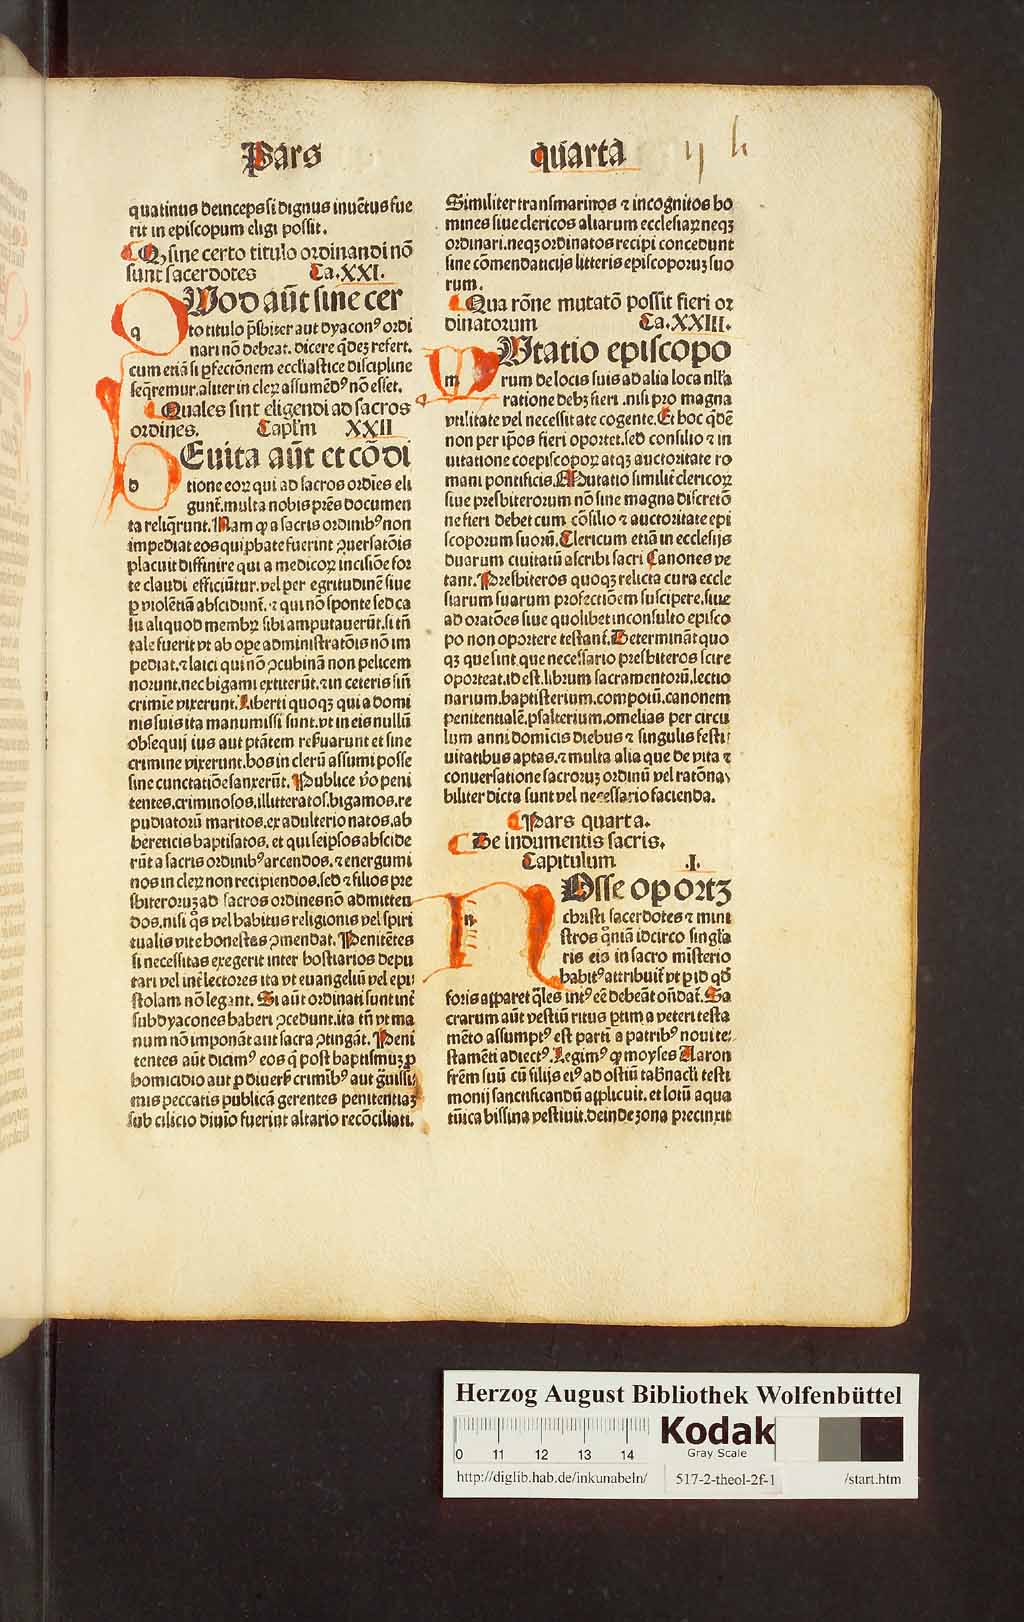 Pars quarta
quatinus deinceps si dignus inuẽtus fue
rit in episcopum eligi possit.
Q, sine certo titulo ordinandi nõ
sunt sacerdotes Ca.XXI.
QVod aũt sine cer
to titulo p̃sbiter aut dyacon⁹ ordi
nari nõ debeat. dicere q̃deȝ refert.
cum etiã si ꝑfectõnem eccl̃iastice discipline
seq̃remur. aliter in cleꝝ assumẽd⁹ nõ esset.
Quales sint eligendi ad sacros
ordines. Capl̃m XXII
DEuita aũt et cõdi
tione eoꝝ qui ad sacros ordiẽs eli
gunt᷑. multa nobis prẽs documen
ta reliq̃runt. Nam ꝙ a sacris ordinib⁹ non
impediat eos qui ꝓbate fuerint ꝯuersatõis
placuit diffinire qui a medicoꝝ incisiõe for
te claudi efficiũtur. vel per egritudinẽ siue
ꝑ violẽtiã abscidunt᷑. ⁊ qui nõ sponte sed ca
su aliquod membꝝ sibi amputauerũt. si tñ
tale fuerit vt ab ope administratõis nõ im
pediat. ⁊ laici qui nõ ꝯcubinã non pelicem
norunt. nec bigami extiterũt. ⁊ in ceteris siñ
crimie vixerunt. Liberti quoqꝫ qui a domi
nis suis ita manumissi sunt. vt in eis nullũ
obsequij ius aut ptãtem reẜuarunt et sine
crimine vixerunt. hos in clerũ assumi posse
sine cunctatiõe sanxerũt. Publice v̾o peni
tentes. criminosos. illitteratos. bigamos. re
pudiatorũ maritos. ex adulterio natos. ab
hereticis baptisatos. et qui seipsos abscide
rũt a sacris ordinib⁹ arcendos. ⁊ energumi
nos in cleꝝ non recipiendos. sed ⁊ filios pre
sbiteroruȝ ad sacros ordines nõ admitten
dos. nisi q̃s vel babitus religionis vel spiri
tualis vite honestas ꝯmendat. Penitẽtes
si necessitas exegerit inter hostiarios depu
tari vel int᷑ lectores ita vt euangeliũ vel epi:
stolam nõ legant. Si aũt ordinati sunt int᷑
subdyacones haberi ꝯcedunt. ita tñ vt ma
num nõ imponãt aut sacra ꝯtingãt. Peni
tentes aũt dicim⁹ eos q̃ post baptismuȝ ꝓ
homicidio aut ꝓ diuerẜ crimĩb⁹ aut g̃uissi
mis peccatis publicã gerentes penitentiaȝ
sub cilicio diuĩo fuerint altario recõciliati.
Similiter transmarinos ⁊ incognitos ho
mines siue clericos aliarum ecclesiaꝝ neqꝫ
ordinari. neqꝫ ordinatos recipi concedunt
sine cõmendaticijs litteris episcoporuȝ suo
rum.
Qua rõne mutatõ possit fieri or
dinatorum Ca.XXIII.
MVtatio episcopo
rum de locis suis ad alia loca nll̃a
ratione debꝫ fieri. nisi pro magna
vtilitate vel necessitate cogente. Et hoc q̃dẽ
non per ip̃os fieri oportet. sed consilio ⁊ in
uitatione coepiscopoꝝ atqꝫ auctoritate ro
mani pontificis. Mutatio similit᷑ clericoꝝ
siue presbiterorum nõ sine magna discretõ
ne fieri debet cum cõsilio ⁊ auctoritate epi
scoporum suorũ. Clericum etiã in ecclesijs
duarum ciuitatũ ascribi sacri Canones ve
tant. Presbiteros quoqꝫ relicta cura eccle
siarum suarum profectiõem suscipere. siue
ad oratões siue quolibet inconsulto episco
po non oportere testant᷑. Determinãt quo
qꝫ que sint. que necessario presbiteros scire
oporteat. id est. librum sacramentorũ. lectio
narium. baptisterium. compotũ. canonem
penitentialẽ. psalterium. omelias per circu
lum anni domicis diebus ⁊ singulis festi:
uitatibus aptas. ⁊ multa alia que de vita ⁊
conuersatione sacroruȝ ordinũ vel ratõna
biliter dicta sunt vel necessario facienda.
Pars quarta.
De indumentis sacris.
Capitulum .I.
NOsse oportꝫ
christi sacerdotes ⁊ mini
stros q̃niã idcirco singl̃a
ris eis in sacro misterio
habit⁹ attribuit᷑ vt ꝑ id qd̾
foris apparet q̃les int⁹ eẽ debeãt oñdat᷑. Sa
crarum aũt vestiũ ritus ꝑtim a veteri testa
mẽto assumpt⁹ est partĩ a patrib⁹ noui te:
stamẽti adiect⁹. Legim⁹ ꝙ moyses Aaron
frẽm suũ cũ filijs ei⁹ ad ostiũ tab̾nacl̃i testi
monij sanctificandũ applicuit. et lotũ aqua
tũica bissina vestiuit. deinde zona precinxit
Herzog August Bibliothek Wolfenbüttel
0 11 12 13 14
Kodak
Gray Scale
http://diglib.hab.de/inkunabeln/ 517-2-theol-2f-1 /start.htm